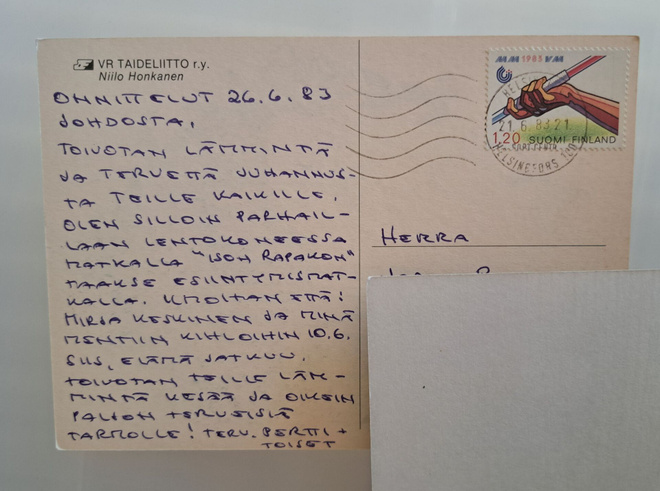 VR TAIDELIITTO r.y.
Niilo Honkanen
ONNITTELUT 26.6.83
JOHDOSTA,
TOIVOTAN LÄMMINTÄ
JA TERVETTÄ JUHANNUS-
TA TEILLE KAIKILLE,
OLEN SILLOIN PARHAIL-
LAAN LENTOKONEESSA
MATKALLA "ISON RAPAKON"
TAAKSE ESIINTYMISMAT-
KALLA. ILMOITAN ETÄ!
MIRJA KESKINEN JA MINÄ
MENTIIN KIHLOIHIN 10.6.
SIIS, ELÄMÄ JATKUU.
TOIVOTAN TEILLE LÄM-
MINTÄ KESÄÄ JA OIKEIN
PALJON TERVEISIÄ
TARMOLLE! TERV. PERTTI +
TOISET
MM 1983 VM
21.6.83.21
1,20 SUOMI FINLAND
HELSINGFORS
HERRA